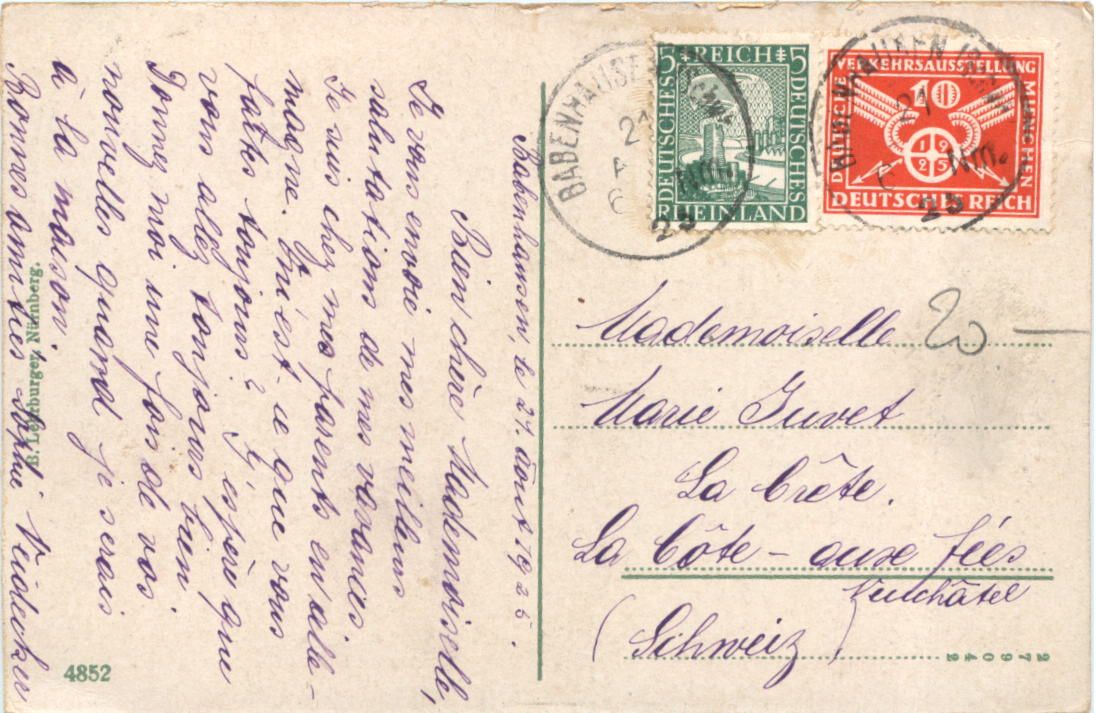 Babenhausen, le 21. août 1925.
Bien chère Mademoiselle,
Je vous envoie mes meilleurs
salutations de mes vacances.
Je suis chez mes parents en Alle-
magne. Qu'est-ce que vous
faites toujours? J'espère que
vous allez toujours bien.
Donnez moi une fois de vos
nouvelles quand je serais
à la maison.
Bonnes amitiés
B. Lehrburger, Nürnberg.
4852
5 REICH 5
DEUTSCHES
DEUTSCHES
RHEINLAND
VERKEHRSAUSSTELLUNG
DEUTSCHE
MÜNCHEN
10
1925
DEUTSCHES REICH
BABENHAUSEN (SCHW.
21
6
Nm.
25
BABENHAUSEN (SCHW.
21
Nm.
25
20
Mademoiselle
Marie Juvet
La Crête.
La Côte-aux fées
Neuchâtel
(Schweiz)
279042